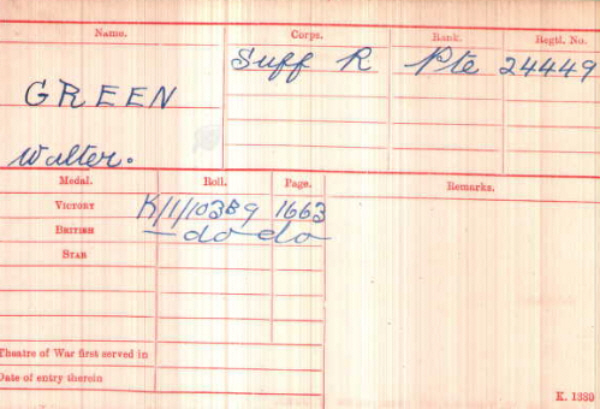 Name. Corps. Rank. Regtl. No.
Suff R Pte 24449
GREEN
Walter.
Medal. Roll. Page. Remarks.
VICTORY K/1/103B9 1663
BRITISH — do do
STAR
Theatre of War first served in
Date of entry therein
K. 1380